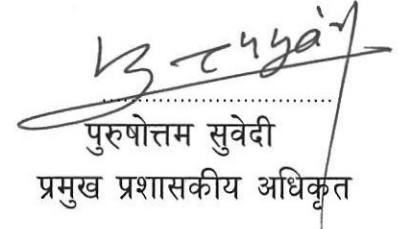 ....................................
पुरुषोत्तम सुवेदी
प्रमुख प्रशासकीय अधिकृत